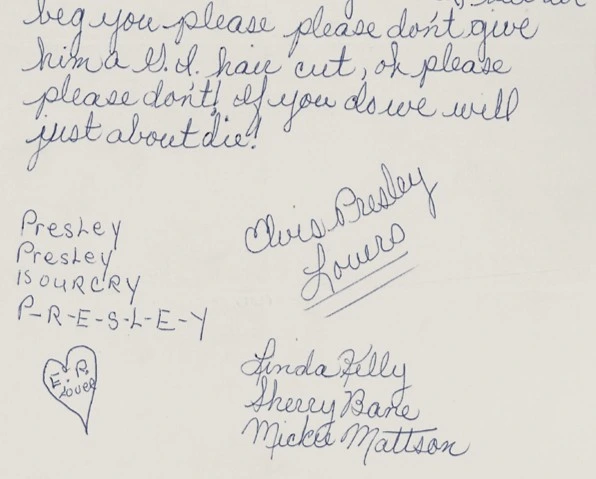 beg you please please don't give
him a G.I. hair cut, oh please
please don't! If you do we will
just about die!
Elvis Presley
Lovers
Presley
Presley
IS OUR CRY
P-R-E-S-L-E-Y
E. P.
Lover
Linda Kelly
Sherry Bane
Mickie Mattson